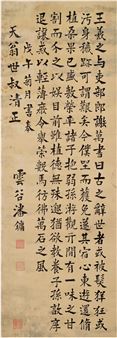 王羲之與吏部郎謝萬書曰古之辭世者或被髮佯狂或
污身穢跡可謂艱矣今僕坐而獲免遂其宿心東遊還脩
植桑果今盛敷榮率諸子抱弱孫游觀其間有一味之甘
割而分之以娛目前雖植德無殊邈猶欲教養子孫以敦厚
退讓戒以輕薄庶令舉策數馬彷彿萬石之風
菊月書奉
天翁世叔清正
雲谷潘